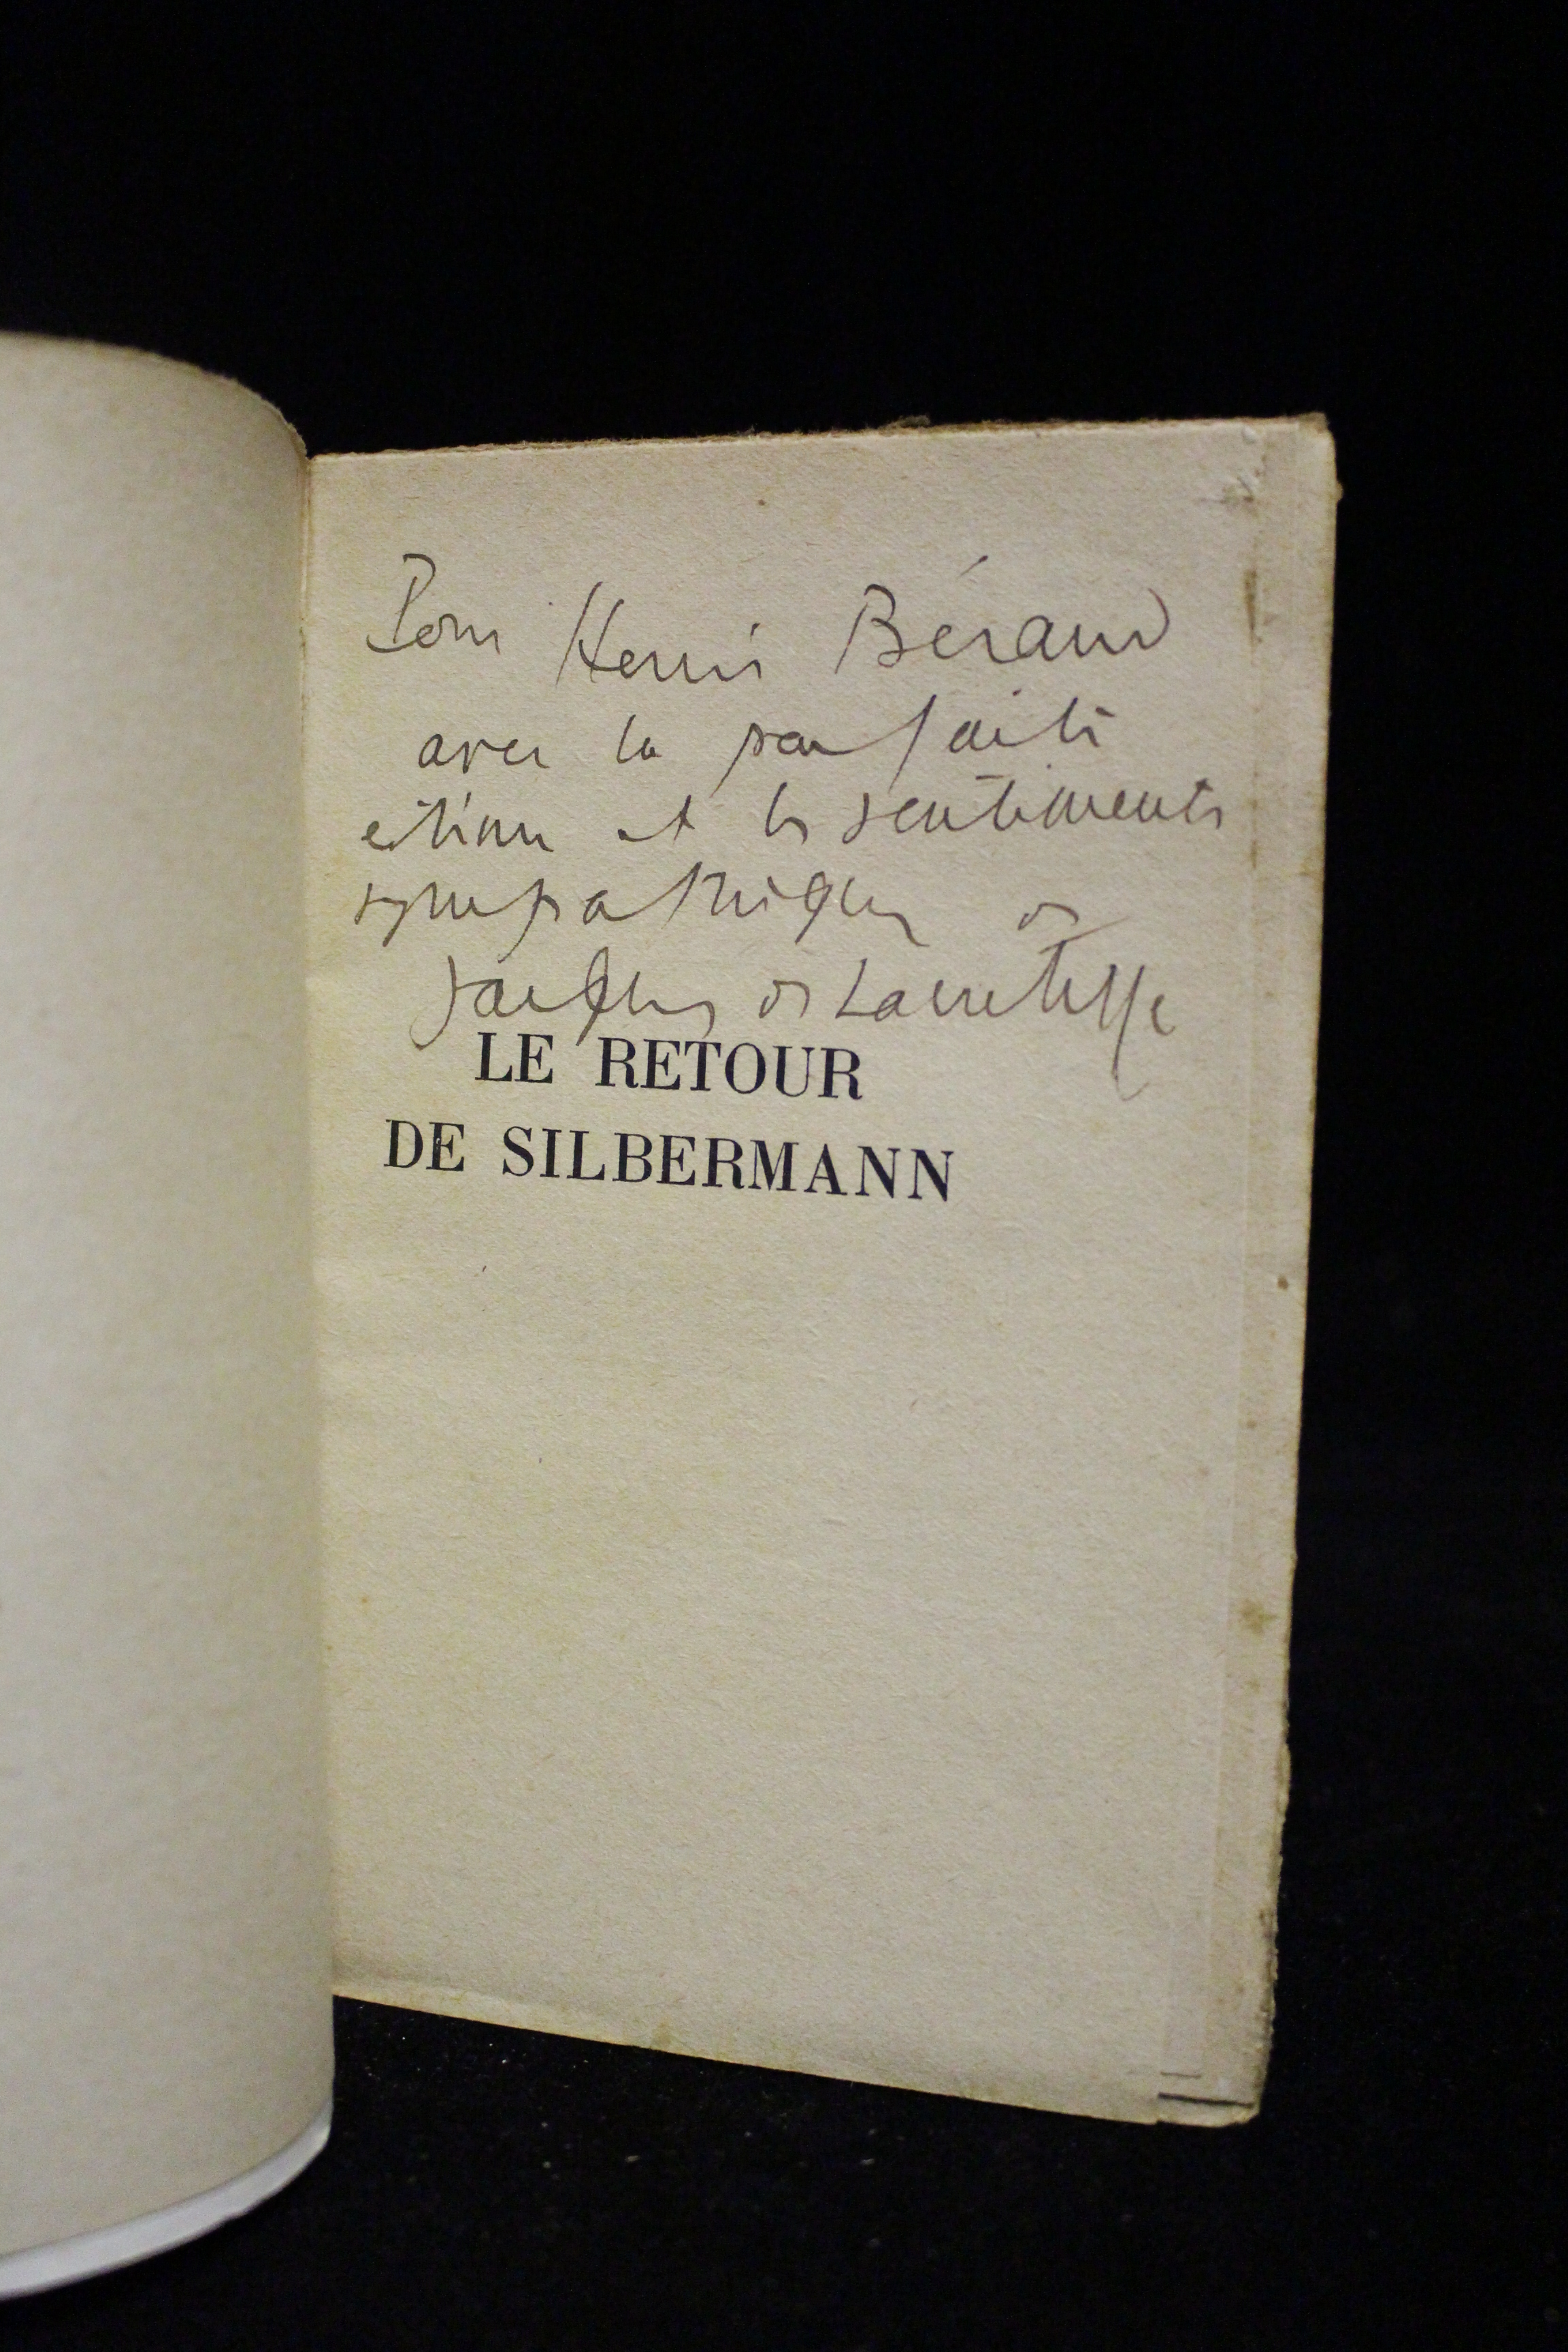 Pour Henri Béraud
avec la parfaite
estime et les sentiments
sympathiques de
Jacques de Lacretelle
LE RETOUR
DE SILBERMANN